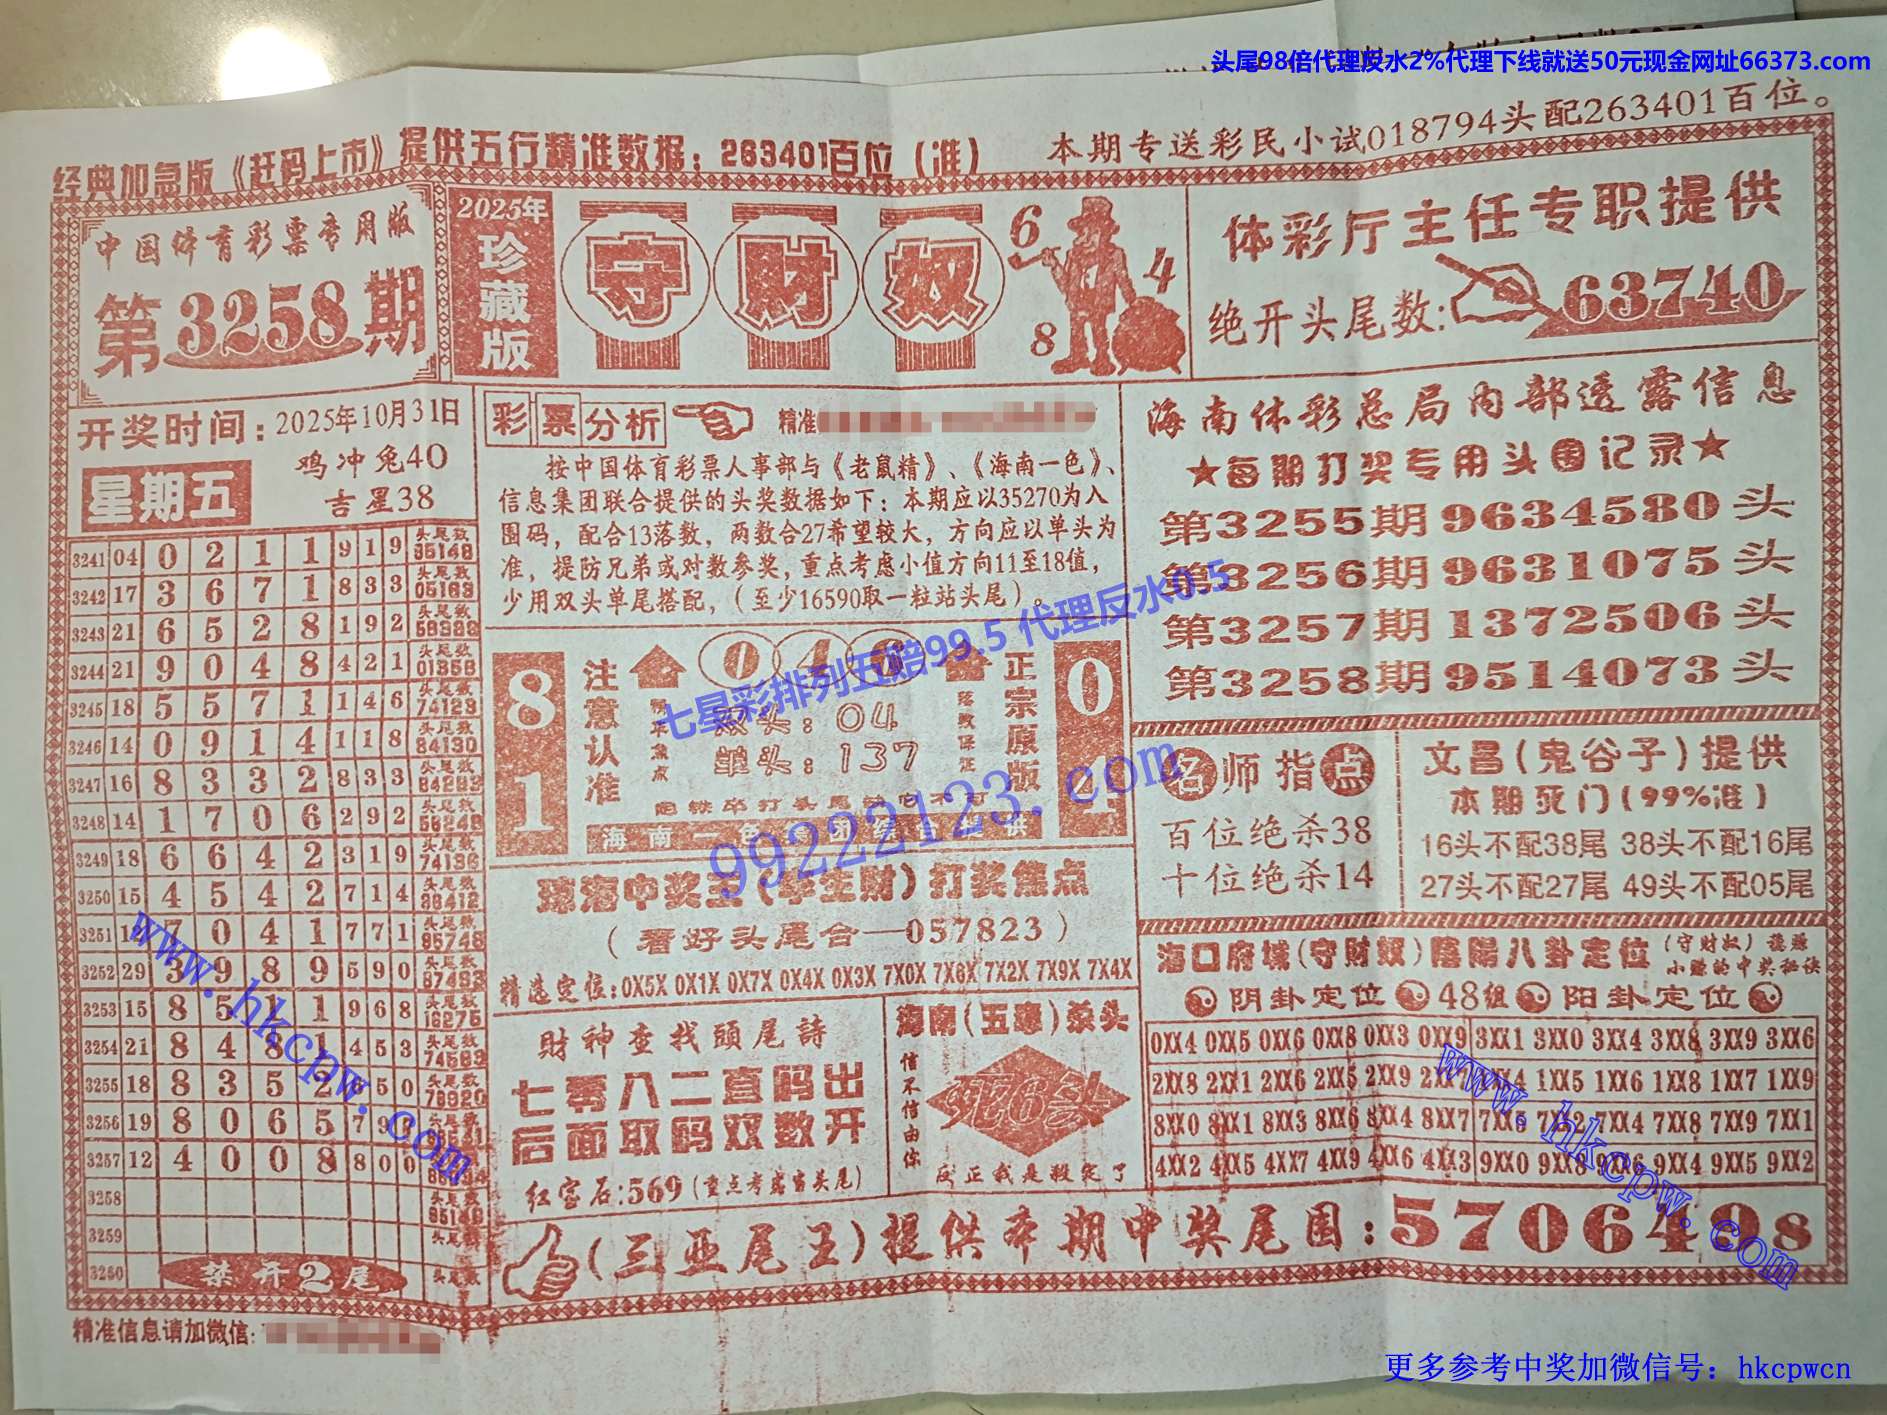 头尾98倍代理反水2%代理下线就送50元现金网址66373.com
经典加急版《赶码上市》提供五行精准数据：263401百位（准）
本期专送彩民小试018794头配263401百位。
中国体育彩票专用版
第3258期
2025年
珍藏版
守财奴
6
4
8
体彩厅主任专职提供
绝开头尾数:63740
开奖时间：2025年10月31日
星期五
鸡冲兔40
吉星38
3241 04 0 2 1 1 9 1 9 头尾数 95148
3242 17 3 6 7 1 8 3 3 头尾数 05169
3243 21 6 5 2 8 1 9 2 头尾数
3244 21 9 0 4 8 4 2 1 头尾数 01356
3245 18 5 5 7 1 1 4 6 头尾数 74123
3246 14 0 9 1 4 1 1 8 头尾数 84130
3247 16 8 3 3 2 8 3 3 头尾数
3248 14 1 7 0 6 2 9 2 头尾数
3249 18 6 6 4 2 3 1 9 头尾数 74136
3250 15 4 5 4 2 7 1 4 头尾数
3251 7 0 4 1 7 7 1 头尾数
3252 29 3 9 8 9 5 9 0 头尾数
3253 15 8 5 1 1 9 6 8 头尾数 16275
3254 21 8 4 8 1 4 5 3 头尾数
3255 18 8 3 5 2 6 5 0 头尾数
3256 19 8 0 6 5 7 9
3257 12 4 0 0 8 8 0 0
3258 头尾数
3259 头尾数
3260 禁开2尾 头尾数
精准信息请加微信:
彩票分析
精准
按中国体育彩票人事部与《老鼠精》、《海南一色》、
信息集团联合提供的头奖数据如下：本期应以35270为入
围码，配合13落数，两数合27希望较大，方向应以单头为
准，提防兄弟或对数参奖，重点考虑小值方向11至18值，
少用双头单尾搭配，（至少16590取一粒站头尾）。
81
注意认准
双头：04
单头：137
正宗原版
04
落数保证
海南一色集团综合提供
七星彩排列五赔99.5 代理反水0.5
99222123.com
琼海中奖王(孪生财)打奖焦点
（看好头尾合—057823）
精选定位：0X5X 0X1X 0X7X 0X4X 0X3X 7X0X 7X6X 7X2X 7X9X 7X4X
财神查找头尾诗
七零八二直码出
后面取码双数开
红宝石:569(重点考虑富头尾)
海南(五毒)杀头
信不信由你
蛇6头
反正我是殺定了
海南体彩总局内部透露信息
★每期打奖专用头围记录★
第3255期9634580头
第3256期9631075头
第3257期1372506头
第3258期9514073头
名师指点
百位绝杀38
十位绝杀14
文昌(鬼谷子)提供
本期死门(99%准)
16头不配38尾 38头不配16尾
27头不配27尾 49头不配05尾
海口府城(守财奴)阴阳八卦定位
(守财奴)稳赚
小赚的中奖秘诀
阴卦定位 48组 阳卦定位
0XX4 0XX5 0XX6 0XX8 0XX3 0XX9 3XX1 3XX0 3XX4 3XX8 3XX9 3XX6
2XX8 2XX1 2XX6 2XX5 2XX9 1XX5 1XX6 1XX8 1XX7 1XX9
8XX0 8XX1 8XX3 8XX6 8XX4 8XX7 7XX5 7XX2 7XX4 7XX8 7XX9 7XX1
4XX2 4XX5 4XX7 4XX9 4XX6 4XX3 9XX0 9XX8 9XX6 9XX4 9XX5 9XX2
(三亚尾王)提供本期中奖尾围：5706498
www.hkcpw.com
www.hkcpw.com
更多参考中奖加微信号：hkcpwcn